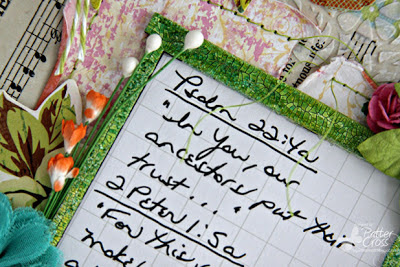 Psalm 22:4a
"In You, our
ancestors put their
trust..."
2 Peter 1:5a
"For this